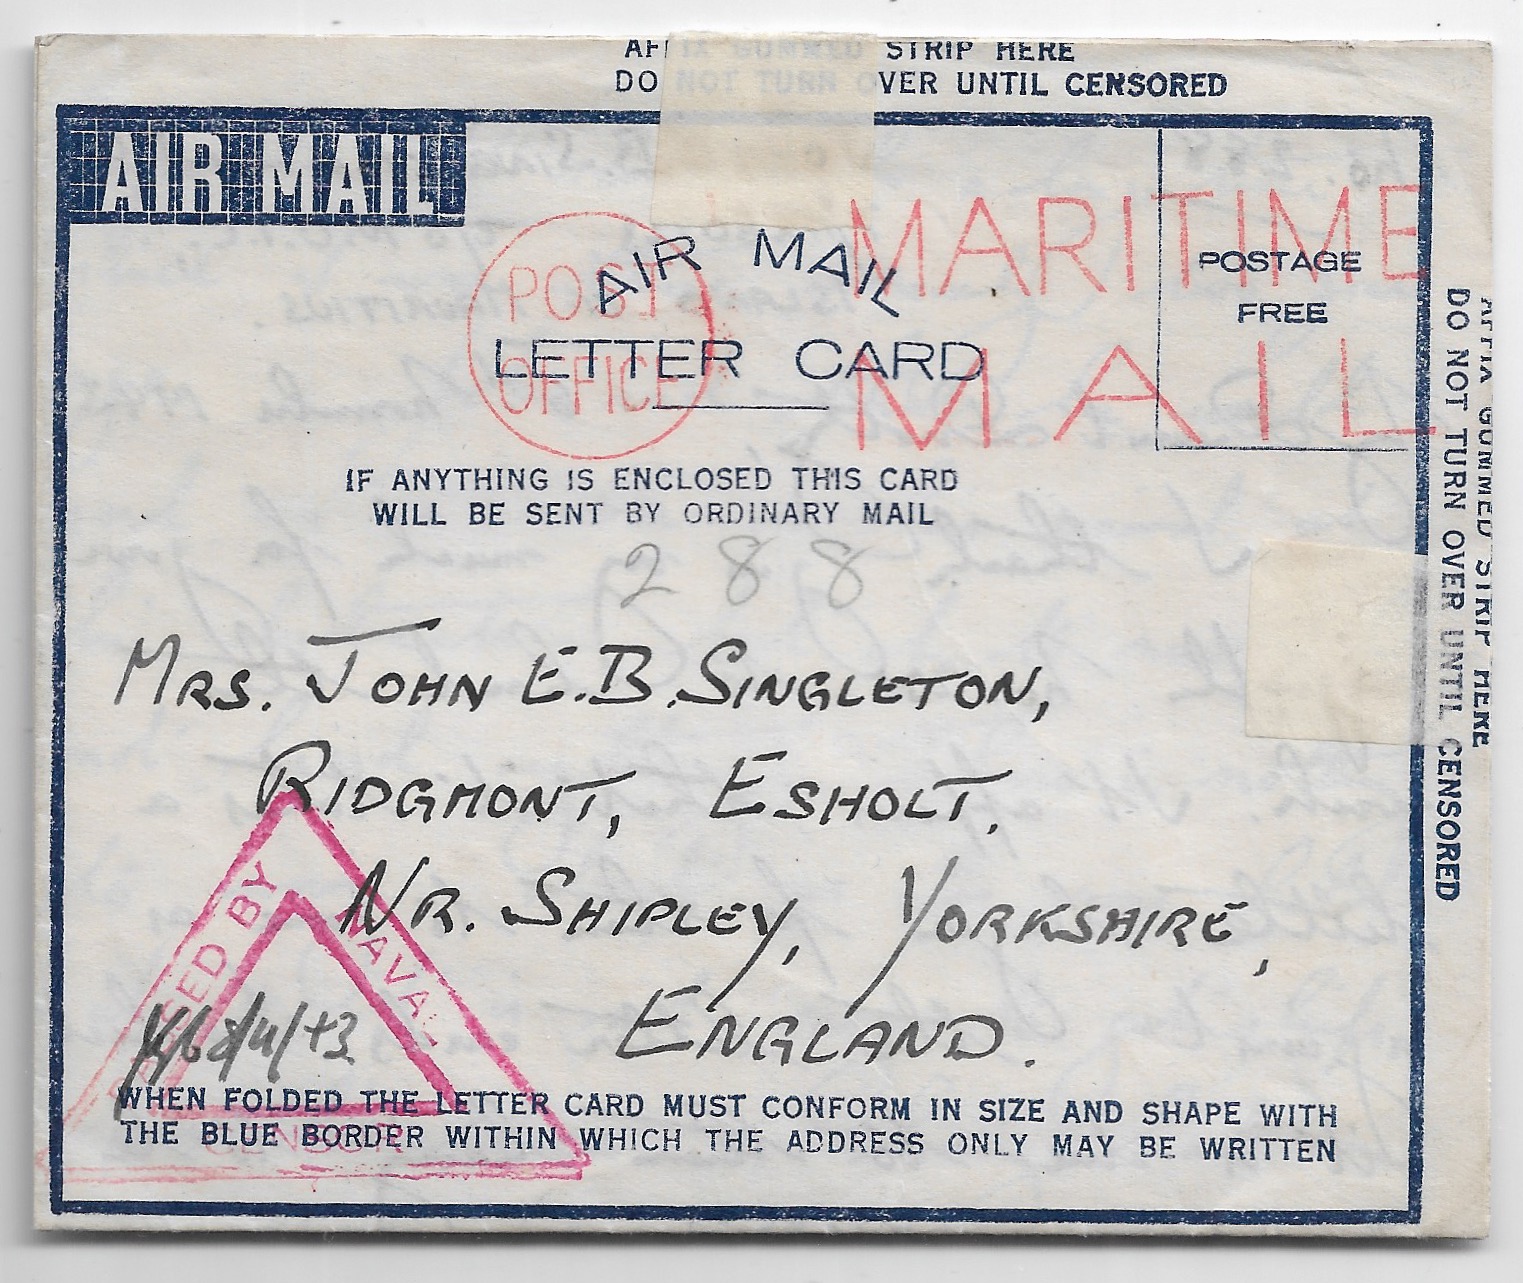 AFFIX GUMMED STRIP HERE
DO NOT TURN OVER UNTIL CENSORED
AIR MAIL
MARITIME
MAIL
POSTAGE
FREE
POST
OFFICE
AIR MAIL
LETTER CARD
IF ANYTHING IS ENCLOSED THIS CARD
WILL BE SENT BY ORDINARY MAIL
288
MRS. JOHN E.B. SINGLETON,
RIDGMONT, ESHOLT.
NR. SHIPLEY, YORKSHIRE,
ENGLAND.
PASSED BY
NAVAL
CENSOR
WHEN FOLDED THE LETTER CARD MUST CONFORM IN SIZE AND SHAPE WITH
THE BLUE BORDER WITHIN WHICH THE ADDRESS ONLY MAY BE WRITTEN
AFFIX GUMMED STRIP HERE
DO NOT TURN OVER UNTIL CENSORED